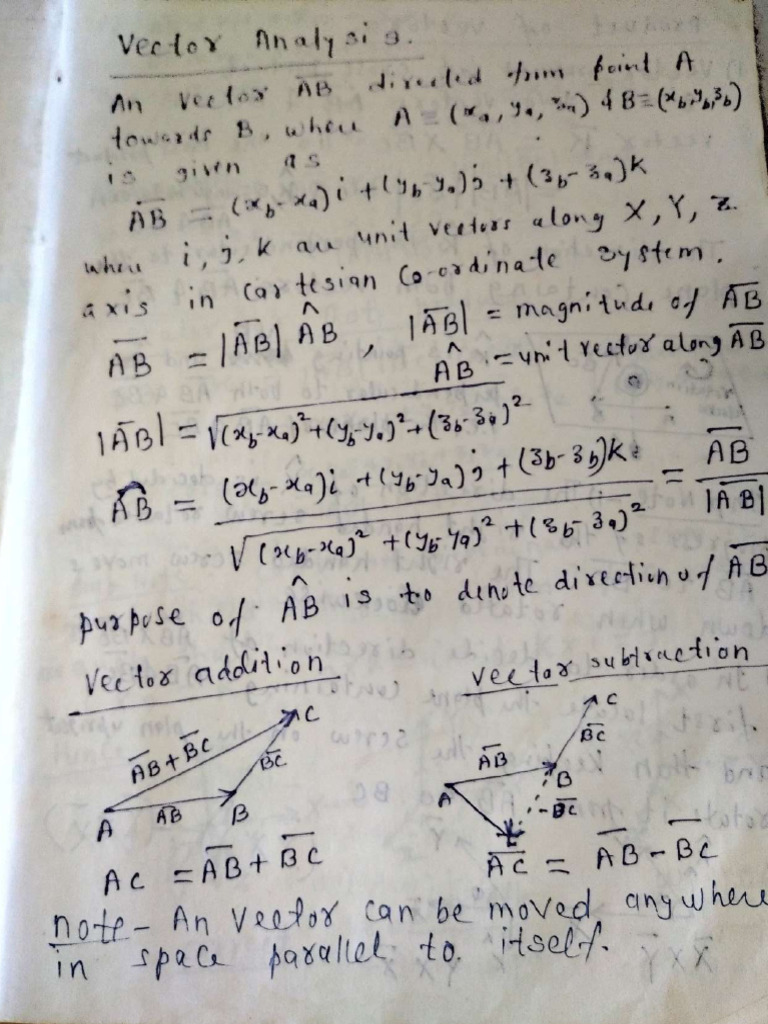 Vector Analysis.
An vector A̅B̅ directed from point A
towards B, where A ≡ (xₐ, yₐ, zₐ) & B ≡ (x_b, y_b, z_b)
is given as
A̅B̅ = (x_b - xₐ)i + (y_b - yₐ)j + (z_b - zₐ)k
where i, j, k are unit vectors along X, Y, Z
axis in cartesian co-ordinate system.
A̅B̅ = |A̅B̅| ÂB , |A̅B̅| = magnitude of A̅B̅
ÂB = unit vector along A̅B̅
|A̅B̅| = √(x_b - xₐ)² + (y_b - yₐ)² + (z_b - zₐ)²
ÂB = (x_b - xₐ)i + (y_b - yₐ)j + (z_b - z_b)k = A̅B̅
√(x_b - xₐ)² + (y_b - yₐ)² + (z_b - zₐ)² |A̅B̅|
purpose of ÂB is to denote direction of A̅B̅
Vector addition
A̅B̅ + B̅C̅
C
B̅C̅
A A̅B̅ B
AC = A̅B̅ + B̅C̅
vector subtraction
C
B̅C̅
A̅B̅
A B
-B̅C̅
A̅C̅ = A̅B̅ - B̅C̅
note - An Vector can be moved anywhere
in space parallel to itself.